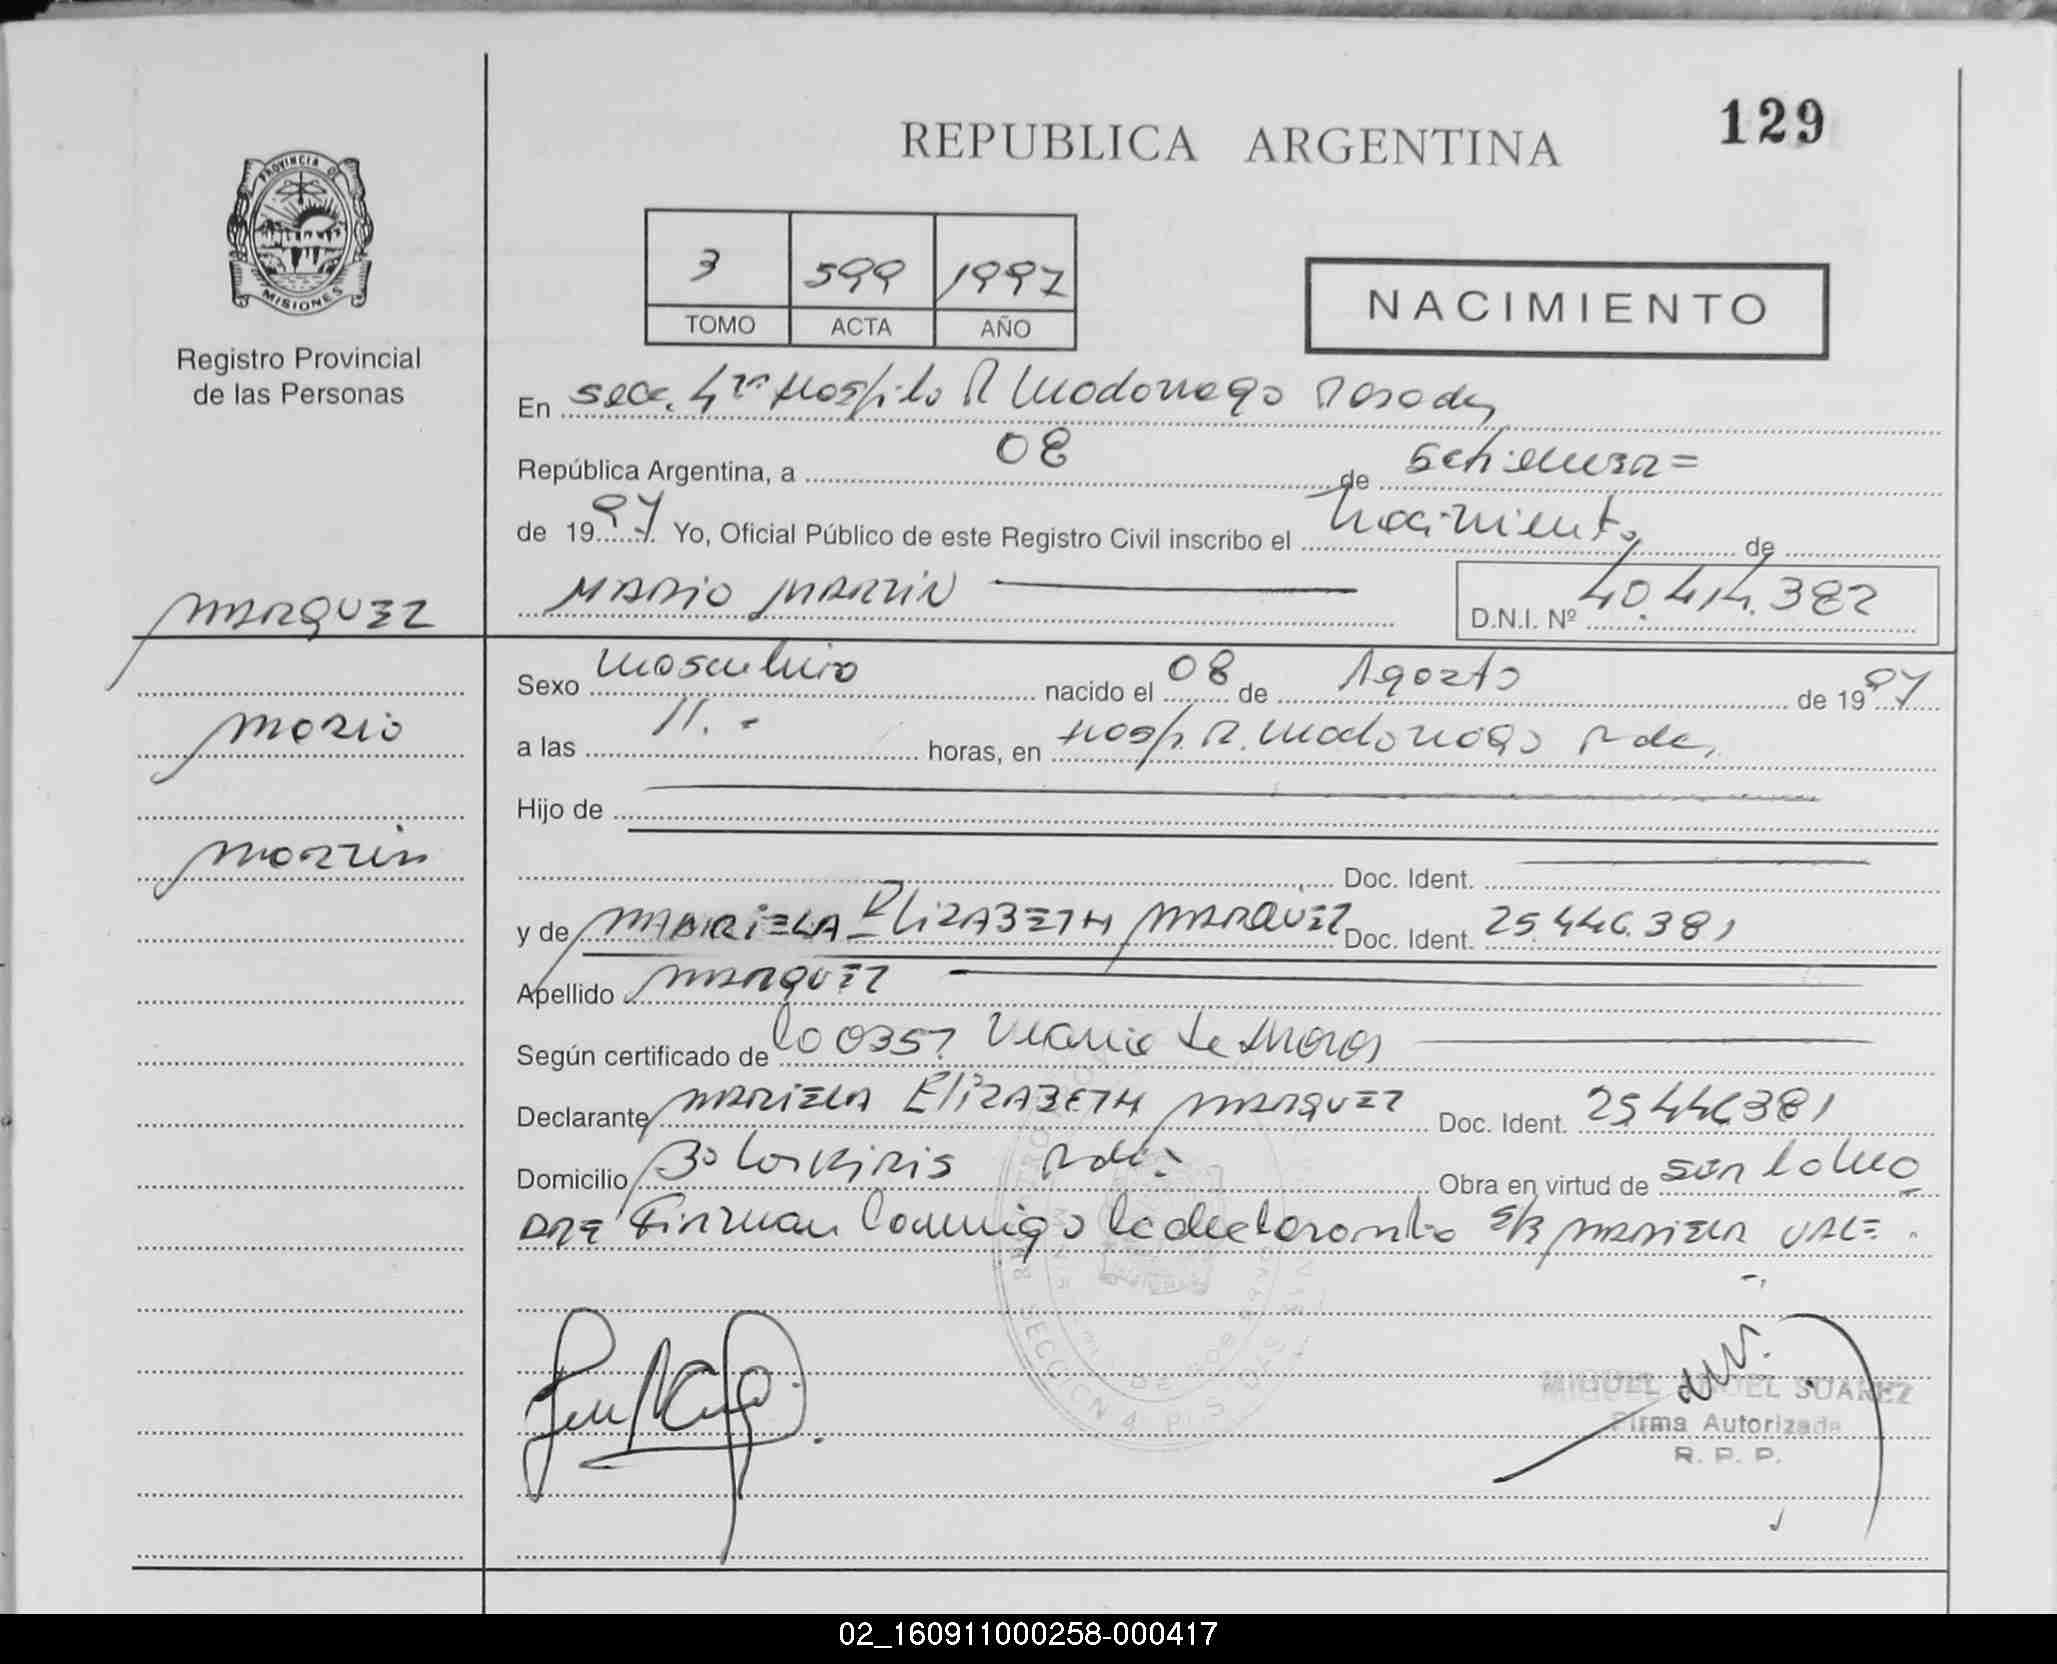 129
REPUBLICA ARGENTINA
PROVINCIA DE
MISIONES
Registro Provincial
de las Personas
3 599 1997
TOMO ACTA AÑO
NACIMIENTO
En secc. 4ta Hospital R Madariaga Posadas
República Argentina, a 08 de Setiembre =
de 1997 Yo, Oficial Público de este Registro Civil inscribo el Nacimiento de
MARQUEZ
MARIO MARTIN
D.N.I. Nº 40.414.382
Sexo Masculino nacido el 08 de Agosto de 1997
Mario
a las 11.- horas, en Hosp. R. Madariaga Pdas,
Hijo de
Martin
Doc. Ident.
y de MARIELA ELIZABETH MARQUEZ Doc. Ident. 25.446.381
Apellido MARQUEZ
Según certificado de
Declarante MARIELA ELIZABETH MARQUEZ Doc. Ident. 25446381
Domicilio Bo Los Kiris Pdas Obra en virtud de ser la Ma
DRE Firman Conmigo la declarante S/R MARIELA VALE.
SECCION 4
MIGUEL ANGEL SUAREZ
Firma Autorizada
R. P. P.
02_160911000258-000417